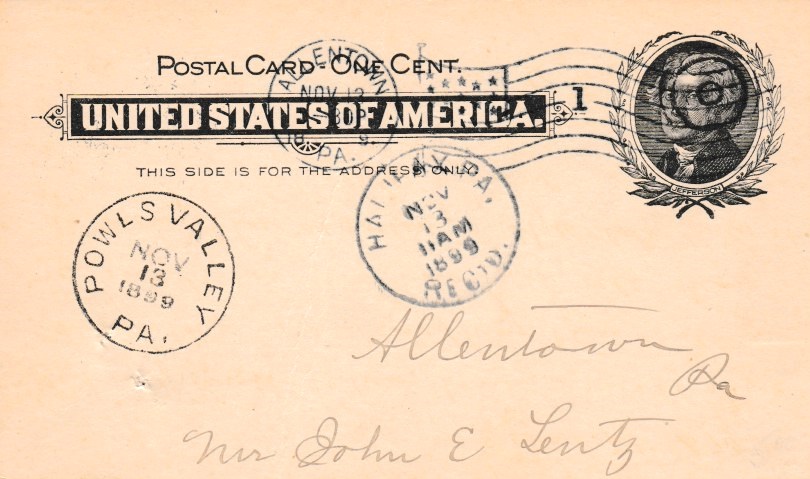 POSTAL CARD - ONE CENT.
UNITED STATES OF AMERICA.
THIS SIDE IS FOR THE ADDRESS ONLY.
1
JEFFERSON
ALLENTOWN
NOV 13
PA.
HALIFAX, PA.
NOV
13
11AM
1899
REC'D.
POWLS VALLEY
NOV
13
1899
PA.
Allentown
Pa
Mr John E Lentz